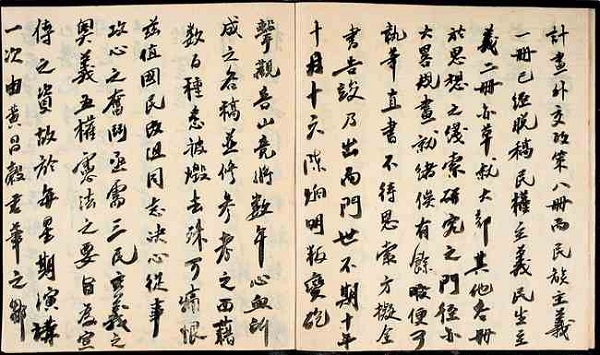 計畫外交政策八冊而民族主義
一冊已經脫稿民權主義民生主
義二冊亦草就大部其他各冊
於思想之線索研究之門徑亦
大畧規畫就緒俟有餘暇便可
執筆直書不待思索方擬全
書告竣乃出而問世不期十一年
六月十六陳炯明叛變砲
擊觀音山竟將數年心血所
成之各稿並備參考之西籍
數百種悉被燬去殊可痛恨
茲值國民改組同志決心從事
攻心之奮鬥亟需三民主義之
奧義五權憲法之要旨為宣
傳之資故於每星期演講
一次由黃昌穀君筆之鄒